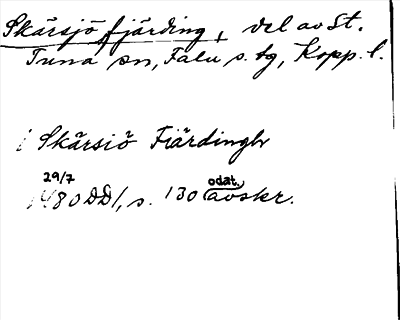 Skärsjö fjärding, del av St.
Tuna sn, Falu s. tg, Kopp. l.
i Skärsiö Fiärdingh
29/7 odat.
1480 DD1, s. 130 avskr.